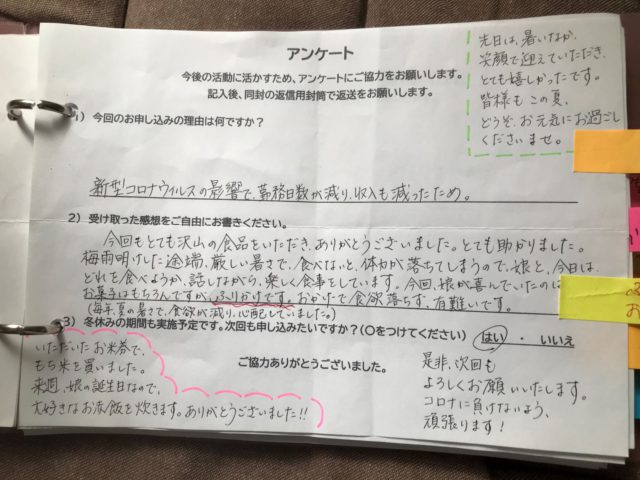 アンケート
今後の活動に活かすため、アンケートにご協力をお願いします。
記入後、同封の返信用封筒で返送をお願いします。
先日は、暑いなか、
笑顔で迎えていただき、
とても嬉しかったです。
皆様も この夏、
どうぞ、お元気に お過ごし
くださいませ。
1）今回のお申し込みの理由は何ですか？
新型コロナウィルスの影響で、勤務日数が減り、収入も減ったため。
2）受け取った感想をご自由にお書きください。
今回もとても沢山の食品をいただき、ありがとうございました。とても助かりました。
梅雨明けした途端、厳しい暑さで、食べないと、体力が落ちてしまうので、娘と、今日は、
どれを食べようか、話しながら、楽しく食事をしています。今回、娘が喜んでいたのは
お菓子はもちろんですが、ふりかけです。おかげで食欲落ちず、有難いです。
（毎年、夏の暑さで、食欲が減り、心配していました。）
3）冬休みの期間も実施予定です。次回も申し込みたいですか？（〇をつけてください） はい ・ いいえ
ご協力ありがとうございました。
いただいた お米券で、
もち米を買いました。
来週、娘の誕生日なので、
大好きなお赤飯を炊きます。ありがとうございました!!
是非、次回も
よろしくお願いいたします。
コロナに負けないよう、
頑張ります！